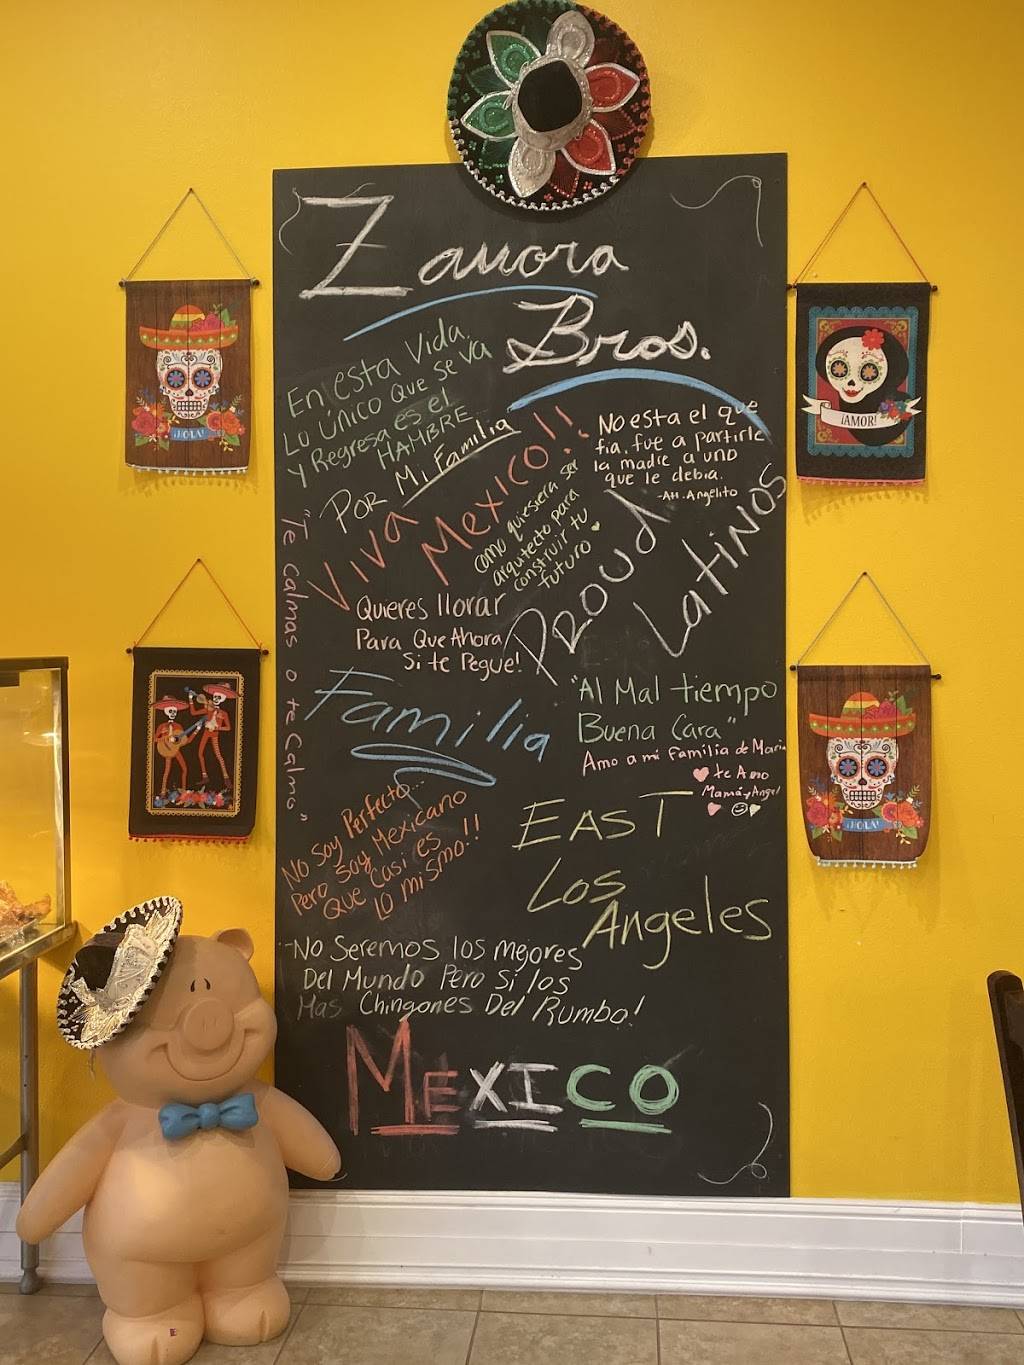 Zamora
Bros.
En esta Vida,
Lo Único Que se va
y Regresa es el
HAMBRE...
Por Mi Familia
Viva
Mexico!!
No esta el que
fia, fue a partirle
la madre a uno
que le debia.
-Att. Angelito
como quiesiera ser
arquitecto para
construir tu
futuro
Proud
Latinos
"Te calmas o te Calmo"
Quieres llorar
Para Que Ahora
Si te Pegue!
Familia
"Al Mal tiempo
Buena Cara"
Amo a mi familia de Maria
te Amo
Mamá y Angel
No Soy Perfecto...
Pero Soy Mexicano
Que Casi es
Lo mismo!!
EAST
Los
Angeles
No Seremos los mejores
Del Mundo Pero Si los
Mas Chingones Del Rumbo!
MEXICO
¡HOLA!
¡AMOR!
¡HOLA!